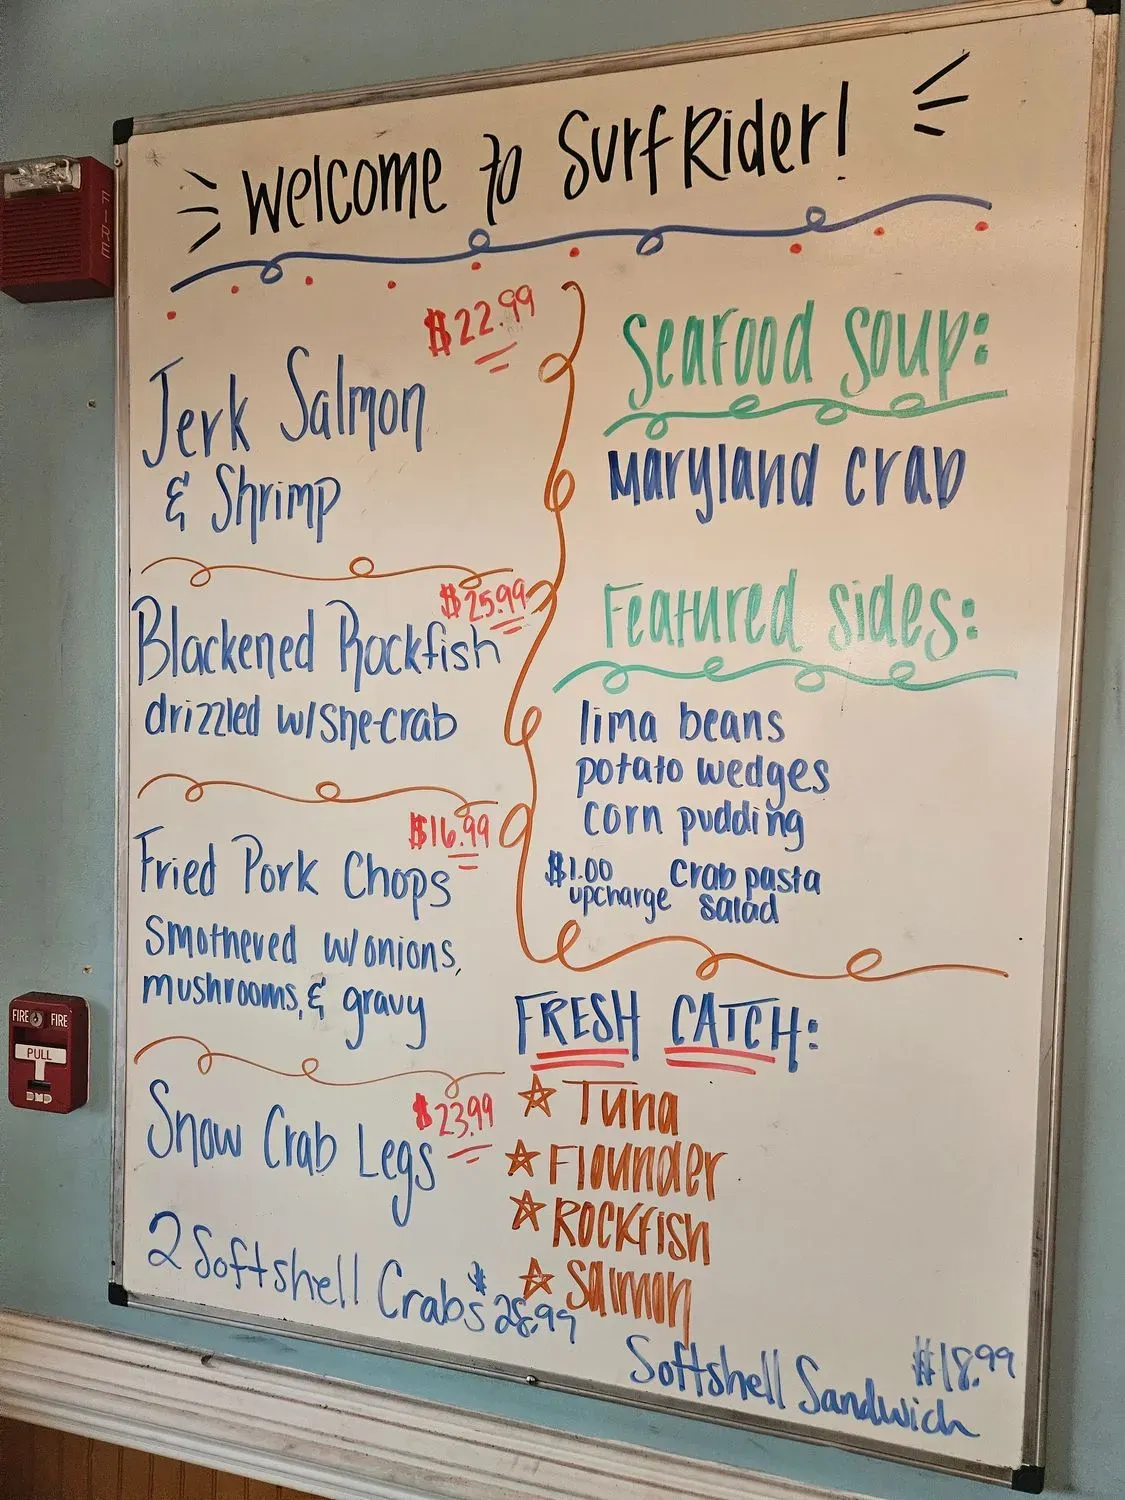 Welcome to Surf Rider!
$22.99
Jerk Salmon
& Shrimp
$25.99
Blackened Rockfish
drizzled w/she-crab
$16.99
Fried Pork Chops
smothered w/onions,
mushrooms, & gravy
$23.99
Snow Crab Legs
2 Softshell Crabs $28.99
Seafood soup:
Maryland crab
Featured sides:
lima beans
potato wedges
corn pudding
$1.00 upcharge
crab pasta
salad
FRESH CATCH:
Tuna
Flounder
Rockfish
Salmon
Softshell Sandwich $18.99
FIRE
FIRE FIRE
PULL